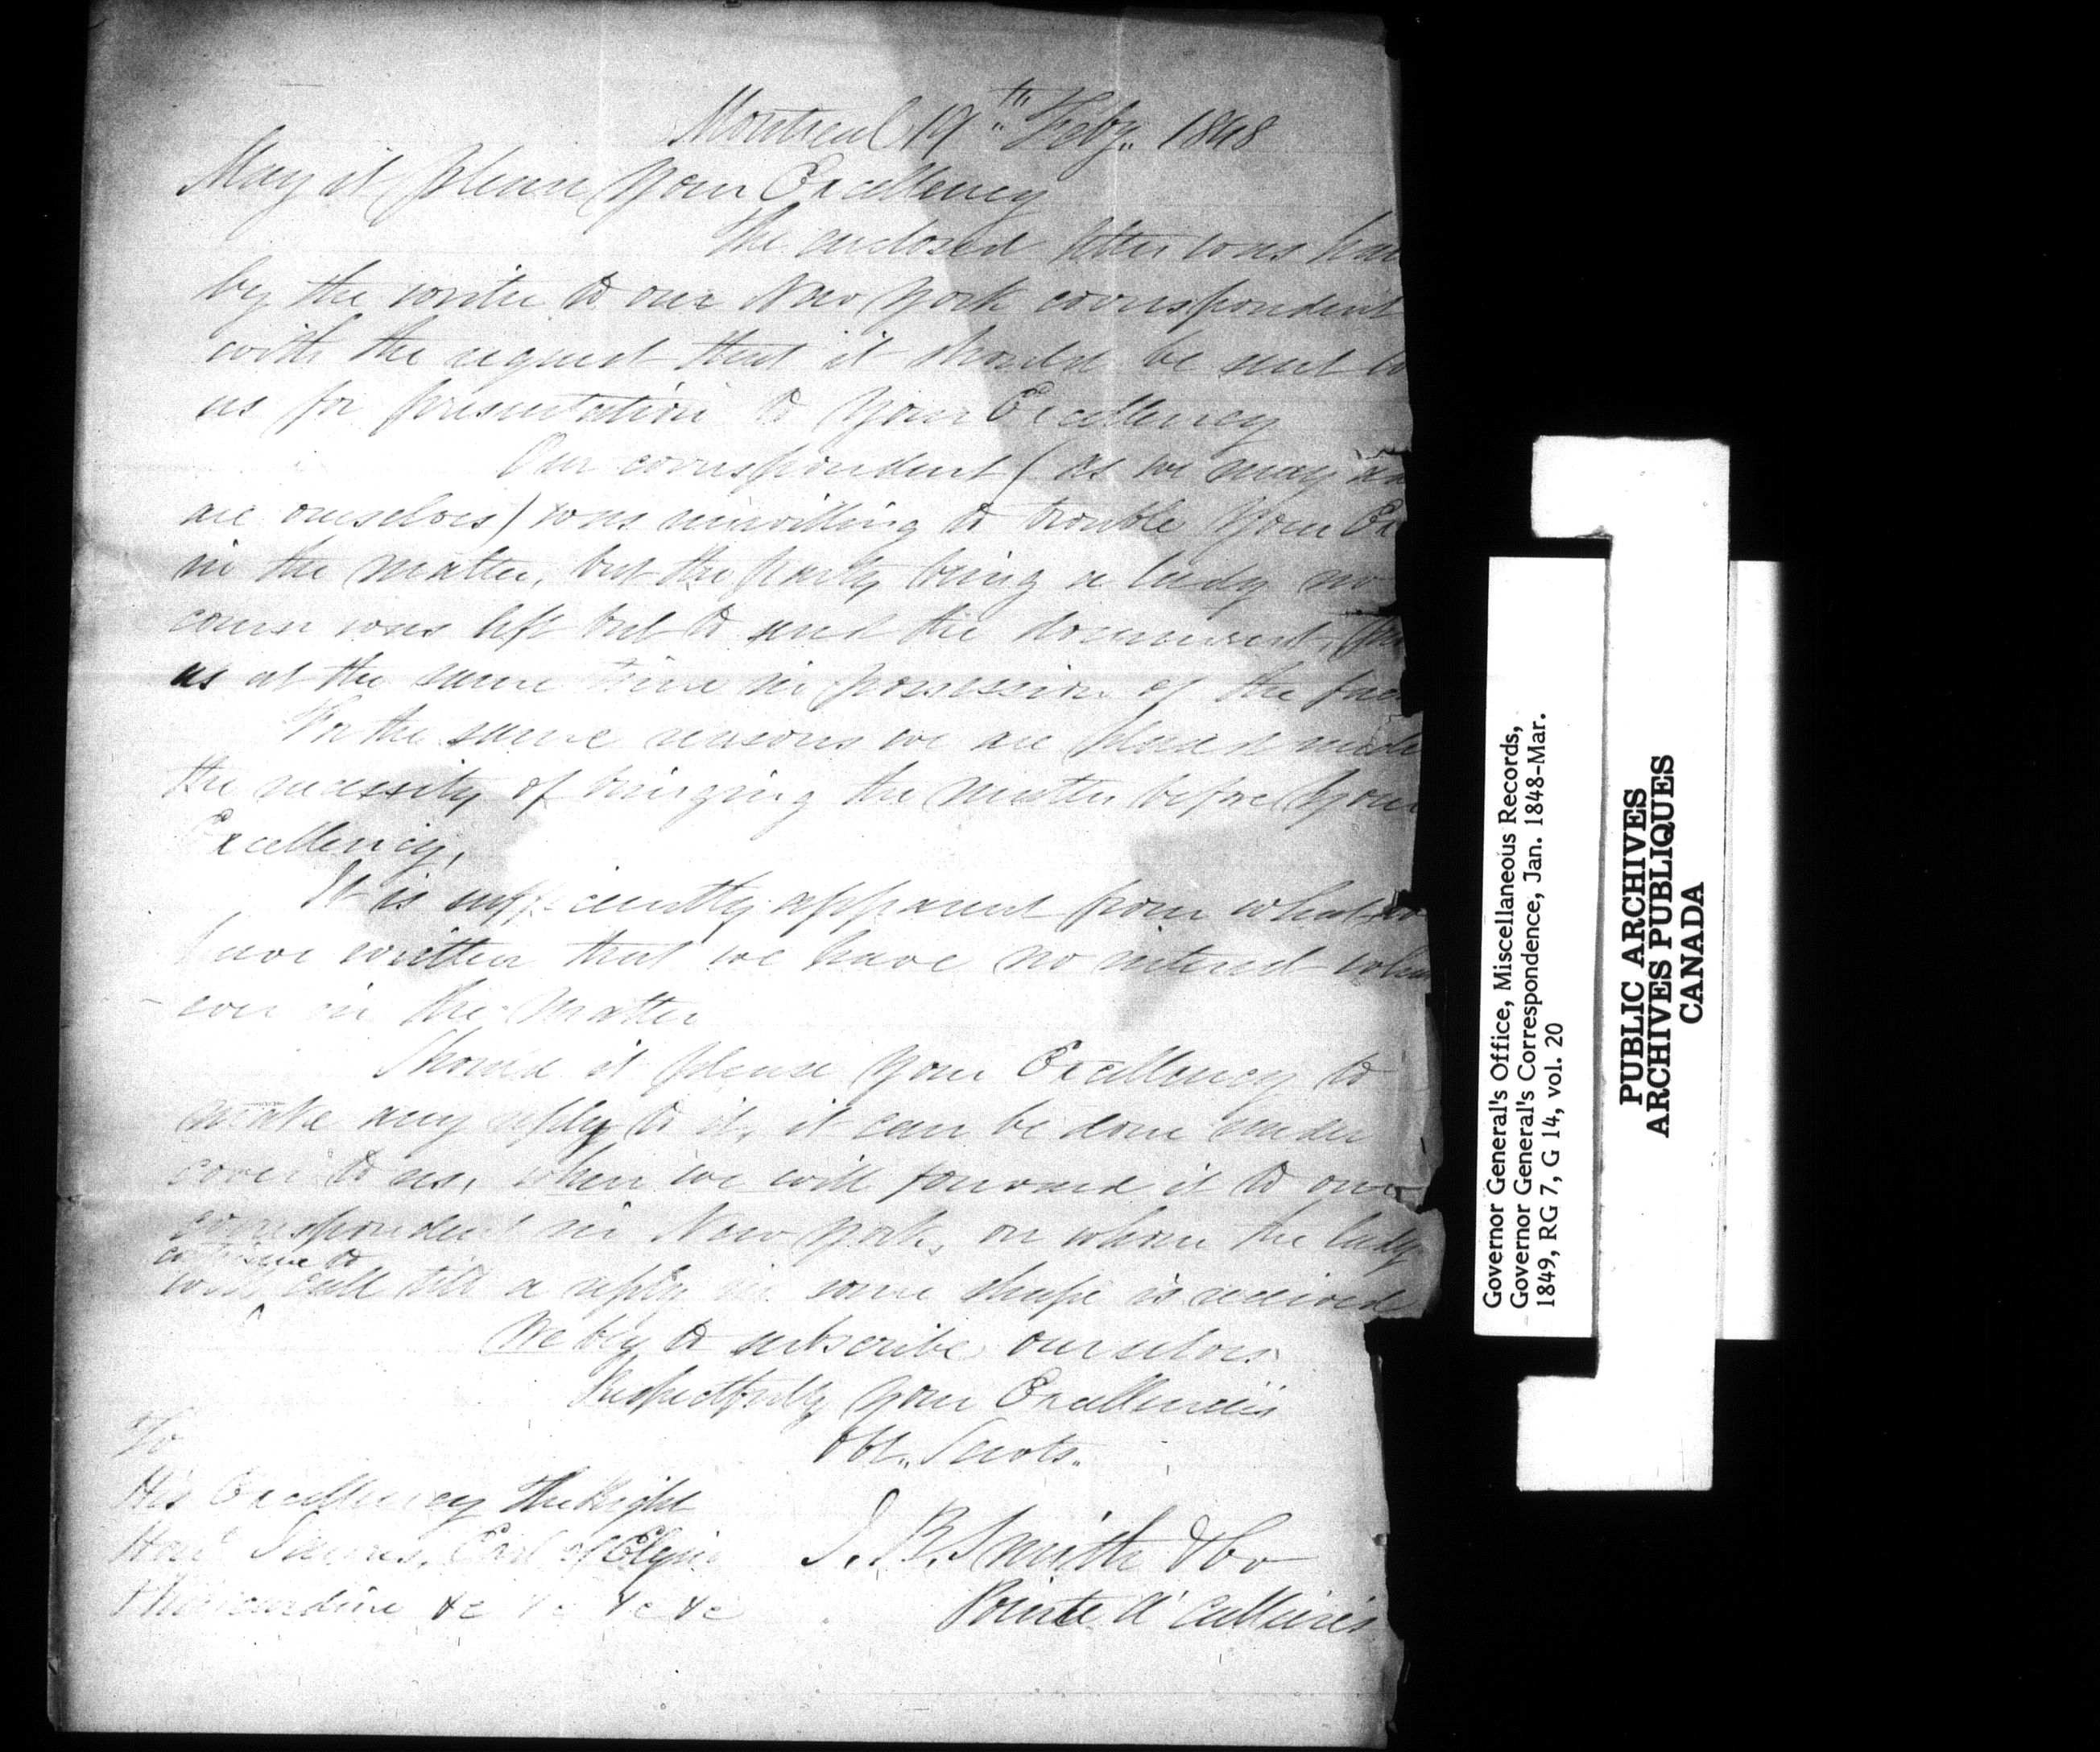 Montreal 19th Feby. 1848
May it please Your Excellency
The enclosed letter was han
by the writer to our New York correspondent
with the request that it should be sent to
us for presentation to Your Excellency
Our correspondent (as we may
are ourselves) was unwilling to trouble Your Ex
in the matter, but the party being a lady no
course was left but to send the document,
us at the same time in possession of the fac
For the same reasons we are placed under
the necessity of bringing the matter before Your
Excellency,
It is sufficiently apparent from what we
have written that we have no interest what
ever in the matter
Should it please Your Excellency to
make any reply to it, it can be done under
cover to us, when we will forward it to our
correspondent in New York, on whom the lady
continue to
will call till a reply in some shape is received
We beg to subscribe ourselves
Respectfully Your Excellencies
Obt. Servts.
To
His Excellency The Right
Honl James, Earl of Elgin
& Kincardine &c &c &c &c
J. B. Smith & Co
Pointe a' Calliere's
Governor General's Office, Miscellaneous Records,
Governor General's Correspondence, Jan. 1848-Mar.
1849, RG 7, G 14, vol. 20
PUBLIC ARCHIVES
ARCHIVES PUBLIQUES
CANADA